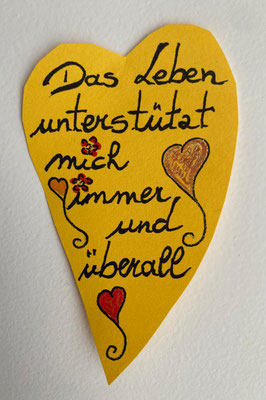 Das Leben
unterstützt
mich
immer
und
überall